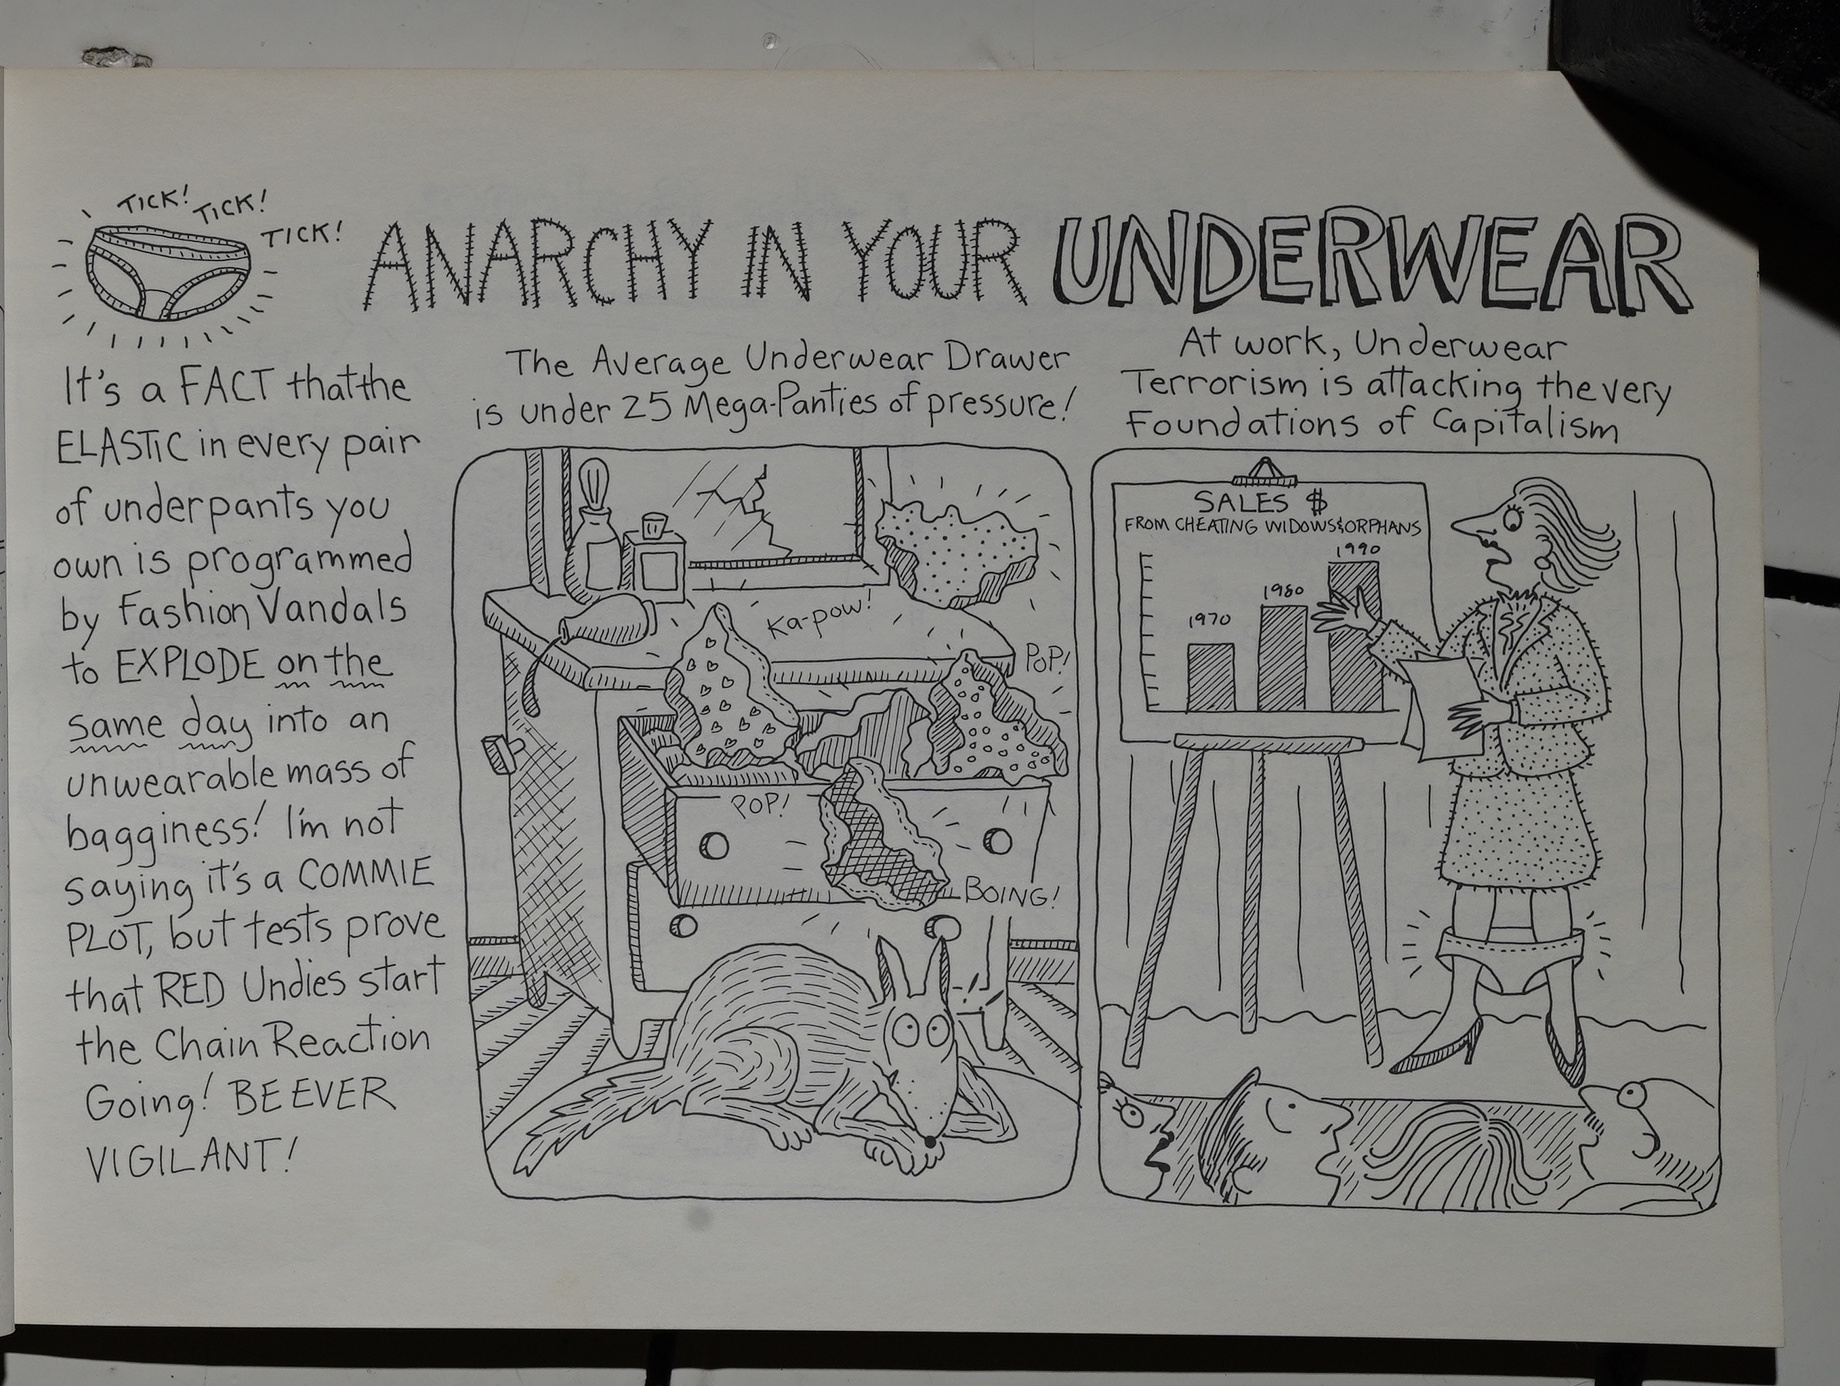 TICK!
TICK!
TICK!
ANARCHY IN YOUR UNDERWEAR
It's a FACT that the
ELASTIC in every pair
of underpants you
own is programmed
by Fashion Vandals
to EXPLODE on the
same day into an
unwearable mass of
bagginess! I'm not
saying it's a COMMIE
PLOT, but tests prove
that RED Undies start
the Chain Reaction
Going! BE EVER
VIGILANT!
The Average Underwear Drawer
is under 25 Mega-Panties of pressure!
Ka-pow!
POP!
POP!
BOING!
At work, Underwear
Terrorism is attacking the very
Foundations of Capitalism
SALES $
FROM CHEATING WIDOWS & ORPHANS
1990
1980
1970